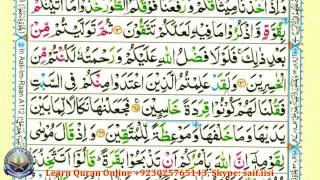 وَاِذْ اَخَذْنَا مِيْثَاقَكُمْ وَرَفَعْنَا فَوْقَكُمُ الطُّوْرَ خُذُوْا مَآ اٰتَيْنٰكُمْ
بِقُوَّةٍ وَّاذْكُرُوْا مَا فِيْهِ لَعَلَّكُمْ تَتَّقُوْنَ ۝٦٣ ثُمَّ تَوَلَّيْتُمْ مِّنْۢ
بَعْدِ ذٰلِكَ فَلَوْلَا فَضْلُ اللّٰهِ عَلَيْكُمْ وَرَحْمَتُهٗ لَكُنْتُمْ مِّنَ
الْخٰسِرِيْنَ ۝٦٤ وَلَقَدْ عَلِمْتُمُ الَّذِيْنَ اعْتَدَوْا مِنْكُمْ فِي السَّبْتِ
فَقُلْنَا لَهُمْ كُوْنُوْا قِرَدَةً خٰسِـِٕيْنَ ۝٦٥ فَجَعَلْنٰهَا نَكَالًا لِّمَا بَيْنَ
يَدَيْهَا وَمَا خَلْفَهَا وَمَوْعِظَةً لِّلْمُتَّقِيْنَ ۝٦٦ وَاِذْ قَالَ مُوْسٰى
لِقَوْمِهٖٓ اِنَّ اللّٰهَ يَاْمُرُكُمْ اَنْ تَذْبَحُوْا بَقَرَةً قَالُوْٓا اَتَتَّخِذُنَا
Learn Quran Online +923025765143, Skype: saif.iisi